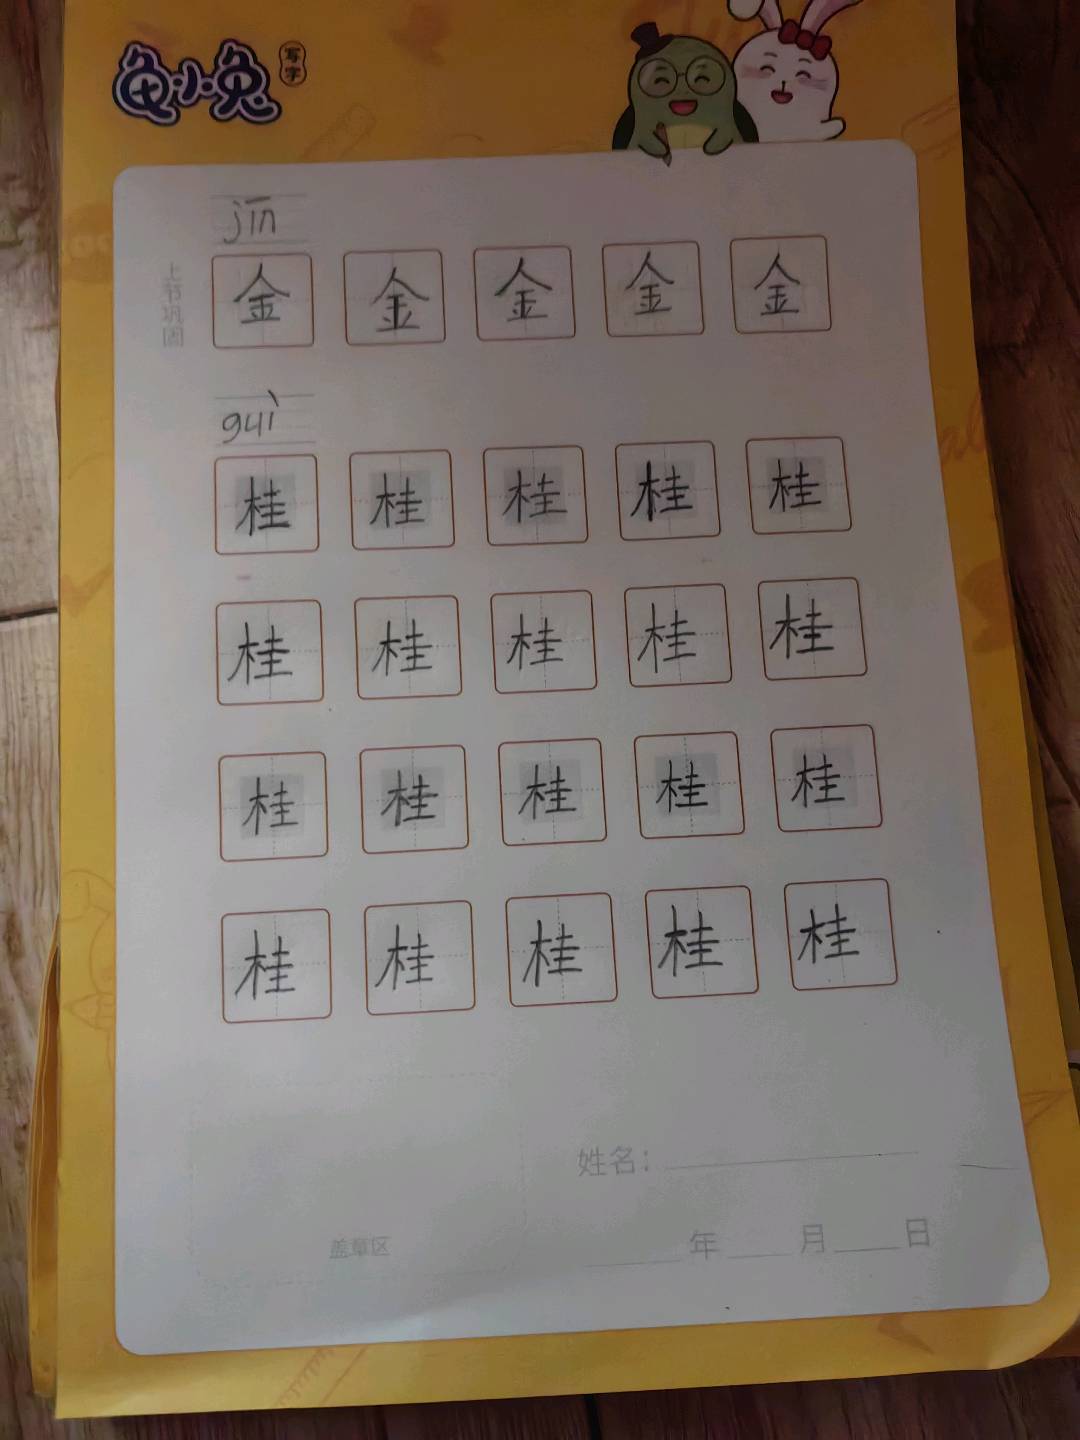 龟小兔
写字
jīn
上节巩固
金 金 金 金 金
guì
桂 桂 桂 桂 桂
桂 桂 桂 桂 桂
桂 桂 桂 桂 桂
桂 桂 桂 桂 桂
姓名:
盖章区
年 月 日